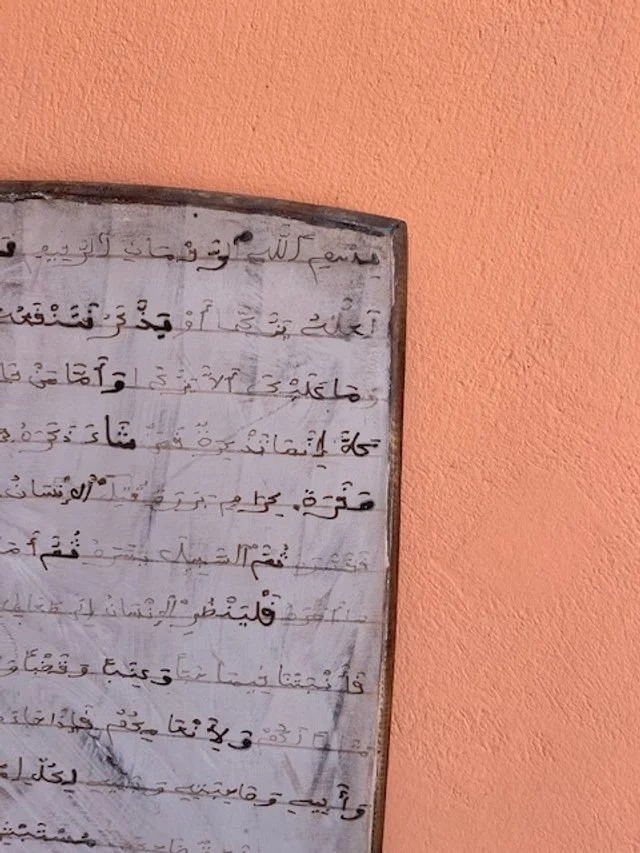 بسم الله الرحمان الرحيم
لعله يزكى أو يذكر فتنفعه
وما عليك ألا يزكى وأما من
كلا إنها تذكرة فمن شاء ذكره
سفرة كرام بررة قتل الإنسان
فقدره ثم السبيل يسره ثم
ما أمره فلينظر الإنسان إلى طعامه
فأنبتنا فيها حبا وعنبا وقضبا
ولأنعامكم فإذا جاءت
وأبيه وصاحبته وبنيه لكل